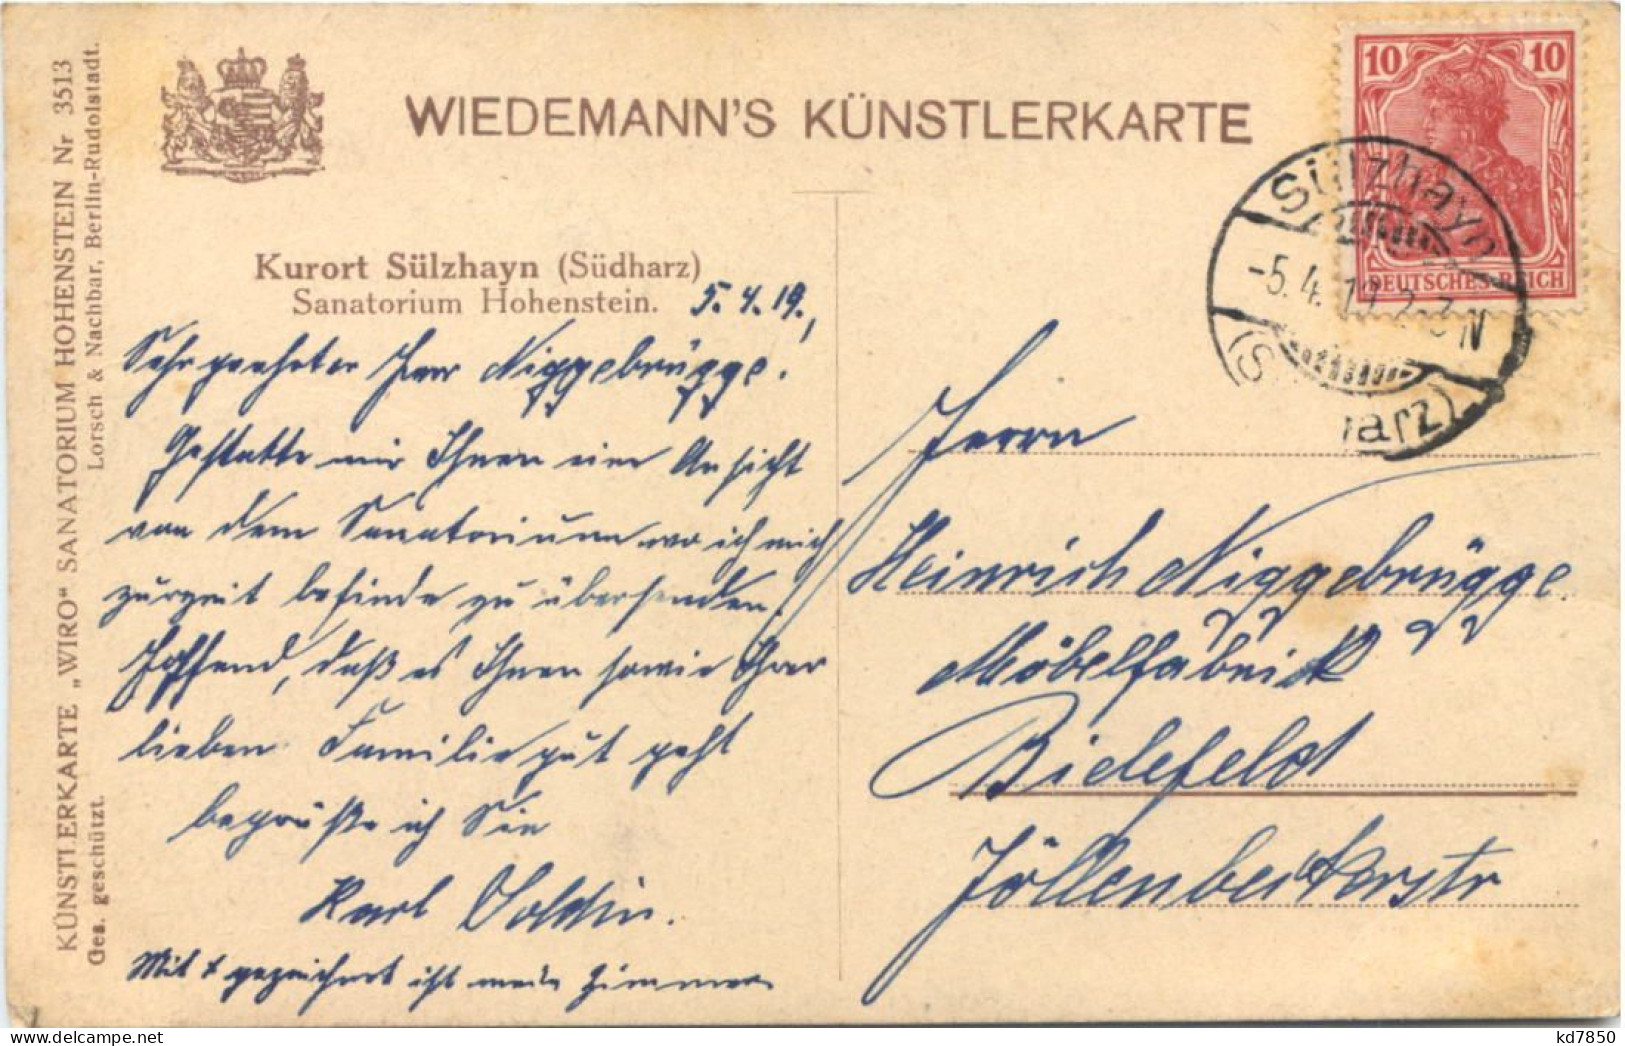 WIEDEMANN'S KÜNSTLERKARTE
10 10
DEUTSCHES REICH
Sülzhayn
-5.4.19 2-3N
arz)
Kurort Sülzhayn (Südharz)
Sanatorium Hohenstein.
5.4.19.,
Sehr geehrter Herr Niggebrügge.
Gestatte mir Ihnen eine Ansicht
von dem Sanatorium wo ich mich
zurzeit befinde zu übersenden.
Hoffend, daß es Ihnen sowie Ihrer
lieben Familie gut geht
begrüße ich Sie
Karl Soldin.
Mit x gezeichnet ist mein Zimmer
Herrn
Heinrich Niggebrügge.
Möbelfabrik
Bielefeld
Jöllenbeckerstr
KÜNSTLERKARTE „WIRO“ SANATORIUM HOHENSTEIN Nr 3513
Ges. geschützt. Lorsch & Nachbar, Berlin-Rudolstadt.
kd7850